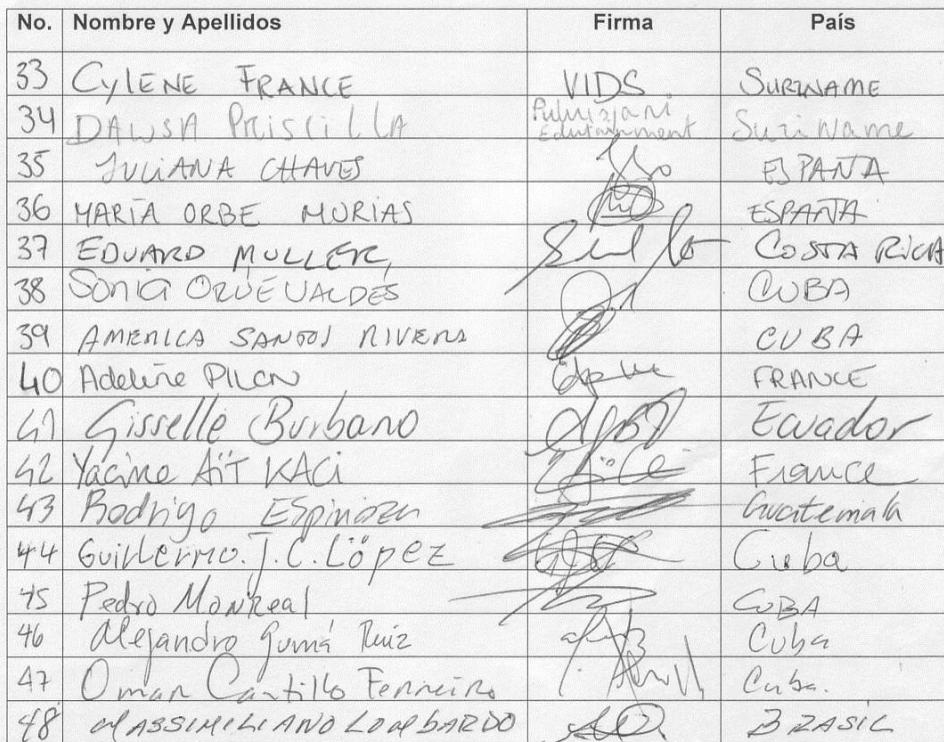 No. Nombre y Apellidos Firma País
33 CYLENE FRANCE VIDS. SURINAME
34 DAWSA PRISCILLA Edutainment Suriname
35 JULIANA CHAVES ESPAÑA
36 MARIA ORBE MURIAS ESPAÑA
37 EDUARD MULLER, COSTA RICA
38 Sonia ORUE VALDES CUBA
39 AMERICA SANTOS RIVERA CUBA
40 Adeline PILON FRANCE
41 Gisselle Burbano Ecuador
42 Yacine AÏT KACi France
43 Rodrigo Espinoza Guatemala
44 Guillermo.J.C.López Cuba
45 Pedro Monreal CUBA
46 Alejandro Gumá Ruiz Cuba
47 Omar Cantillo Ferreiro Cuba.
48 MASSIMILIANO LOMBARDO BRASIL